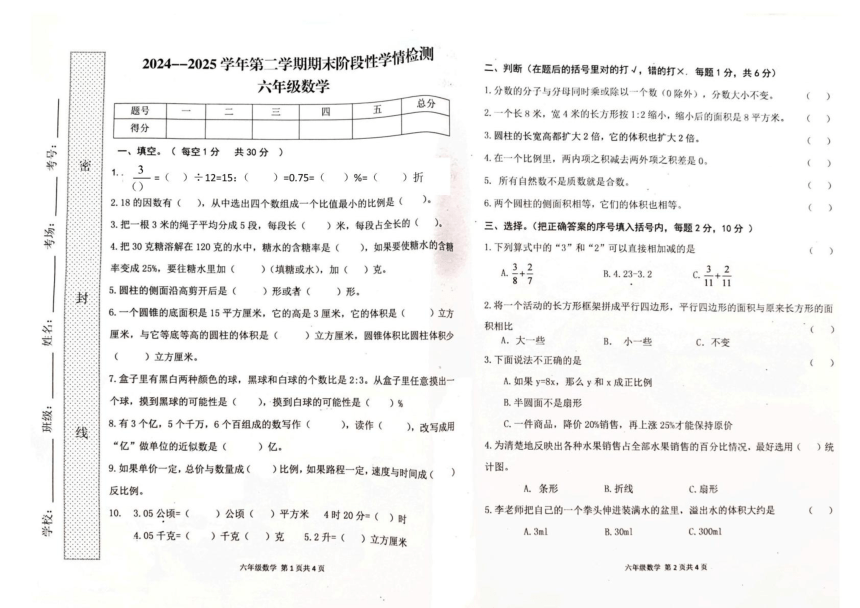 学校：________ 班级：________ 姓名：________ 考场：________ 考号：________
密
封
线
2024--2025 学年第二学期期末阶段性学情检测
六年级数学
题号 一 二 三 四 五 总分
得分
一、填空。（ 每空 1 分 共 30 分 ）
1. 3/( ) =（ ）÷12=15:（ ）=0.75=（ ）%=（ ）折
2. 18 的因数有（ ），从中选出四个数组成一个比值最小的比例是（ ）。
3. 把一根 3 米的绳子平均分成 5 段，每段长（ ）米，每段占全长的（ ）。
4. 把 30 克糖溶解在 120 克的水中，糖水的含糖率是（ ），如果要使糖水的含糖
率变成 25%，要往糖水里加（ ）（填糖或水），加（ ）克。
5. 圆柱的侧面沿高剪开后是（ ）形或者（ ）形。
6. 一个圆锥的底面积是 15 平方厘米，它的高是 3 厘米，它的体积是（ ）立方
厘米，与它等底等高的圆柱的体积是（ ）立方厘米，圆锥体积比圆柱体积少
（ ）立方厘米。
7. 盒子里有黑白两种颜色的球，黑球和白球的个数比是 2:3。从盒子里任意摸出一
个球，摸到黑球的可能性是（ ），摸到白球的可能性是（ ）%
8. 有 3 个亿，5 个千万，6 个百组成的数写作（ ），读作（ ），改写成用
“亿”做单位的近似数是（ ）亿。
9. 如果单价一定，总价与数量成（ ）比例，如果路程一定，速度与时间成（ ）
反比例。
10. 3.05 公顷=（ ）公顷（ ）平方米 4 时 20 分=（ ）时
4.05 千克=（ ）千克（ ）克 5.2 升=（ ）立方厘米
六年级数学 第 1 页共 4 页
二、判断（在题后的括号里对的打√，错的打×. 每题 1 分，共 6 分）
1. 分数的分子与分母同时乘或除以一个数（0 除外），分数大小不变。 （ ）
2. 一个长 8 米，宽 4 米的长方形按 1:2 缩小，缩小后的面积是 8 平方米。 （ ）
3. 圆柱的长宽高都扩大 2 倍，它的体积也扩大 2 倍。 （ ）
4. 在一个比例里，两内项之积减去两外项之积差是 0。 （ ）
5. 所有自然数不是质数就是合数。 （ ）
6. 两个圆柱的侧面积相等，它们的体积也相等。 （ ）
三、选择。（把正确答案的序号填入括号内，每题 2 分，10 分 ）
1. 下列算式中的“3”和“2”可以直接相加减的是 （ ）
A. 3/8+2/7 B. 4.23-3.2 C. 3/11+2/11
2. 将一个活动的长方形框架拼成平行四边形，平行四边形的面积与原来长方形的面
积相比 （ ）
A. 大一些 B. 小一些 C. 不变
3. 下面说法不正确的是 （ ）
A. 如果 y=8x，那么 y 和 x 成正比例
B. 半圆面不是扇形
C. 一件商品，降价 20%销售，再上涨 25%才能保持原价
4. 为清楚地反映出各种水果销售占全部水果销售的百分比情况，最好选用（ ）统
计图。
A. 条形 B. 折线 C. 扇形
5. 李老师把自己的一个拳头伸进装满水的盆里，溢出水的体积大约是 （ ）
A. 3ml B. 30ml C. 300ml
六年级数学 第 2 页共 4 页